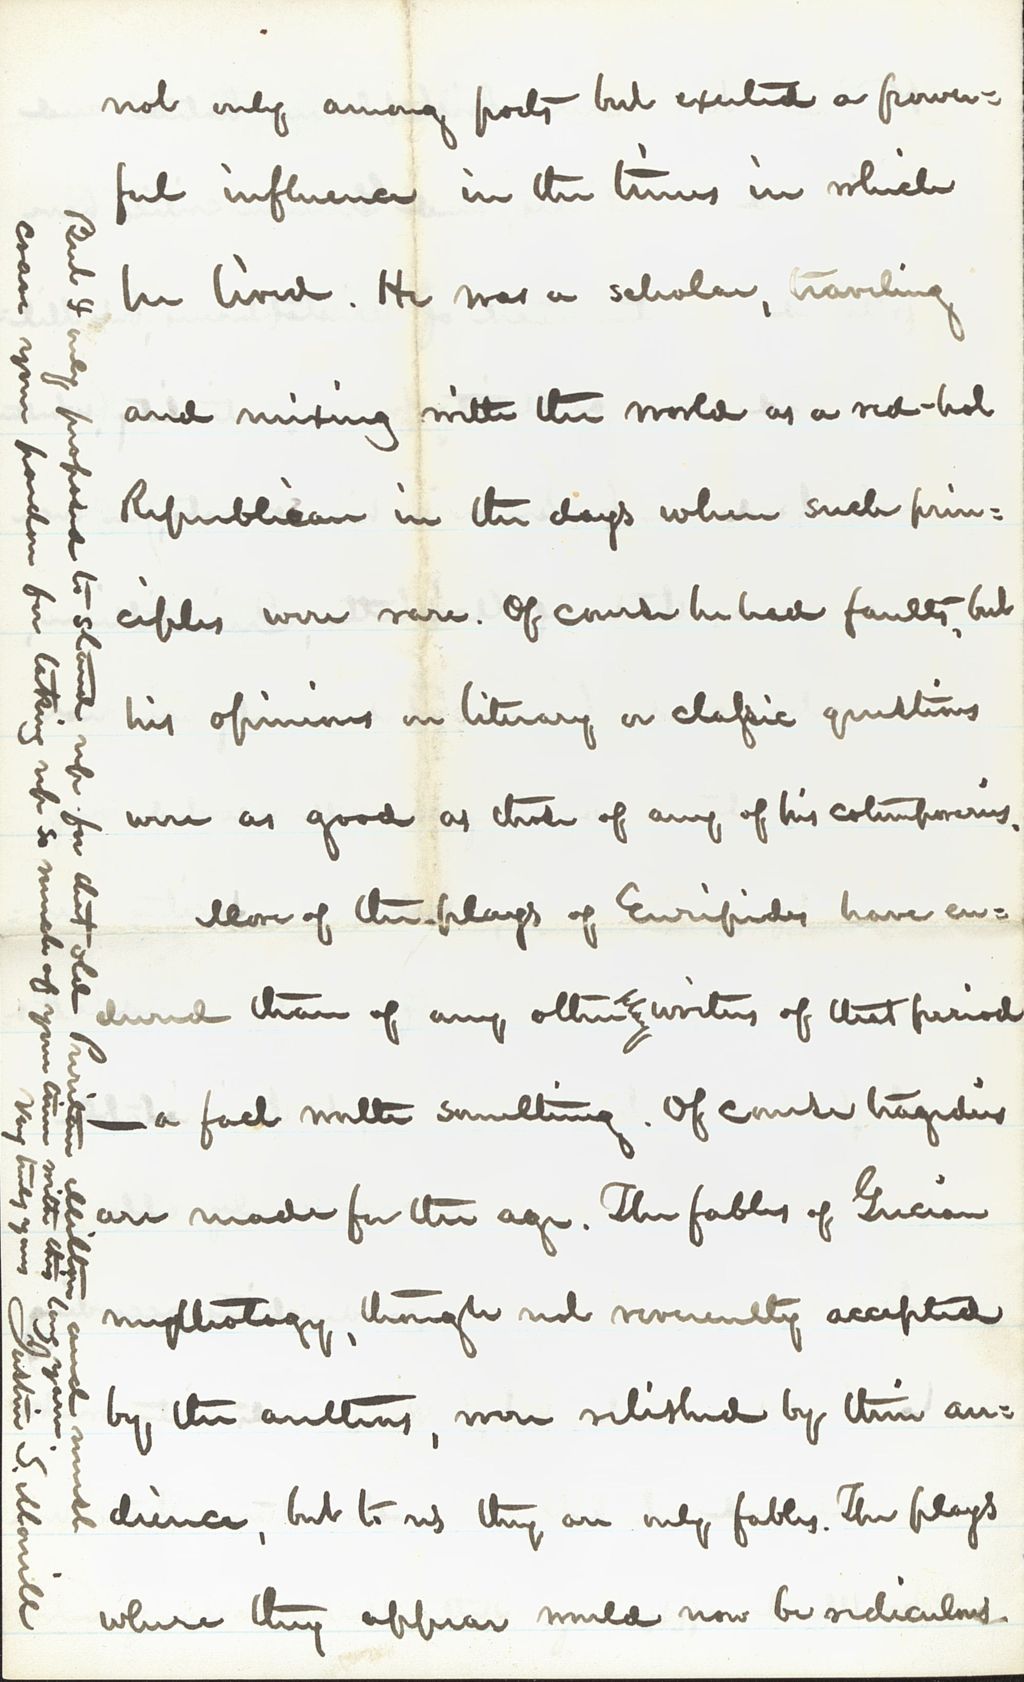 not only among poets but exerted a power=
ful influence in the times in which
he lived. He was a scholar, traveling
and mixing with the world as a red-hot
Republican in the days when such prin=
ciples were rare. Of course he had faults, but
his opinions on literary or classic questions
were as good as those of any of his cotemporaries.
More of the plays of Euripides have en=
dured than of any other writers of that period
— a fact worth something. Of course tragedies
are made for the age. The fables of Grecian
mythology, though not reverently accepted
by the authors, were relished by their au=
dience, but to us they are only fables. The plays
where they appear would now be ridiculous.
But I only proposed to stand up for that old Puritan Milton and must
crave your pardon for taking up so much of your time with this long yarn.
Very truly yours Justin S. Morrill